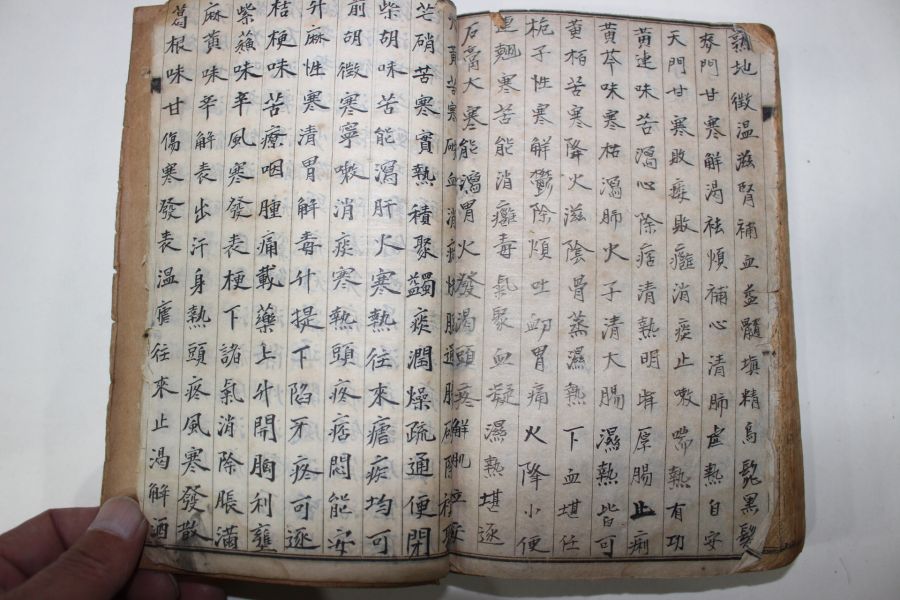 熟地微温滋腎補血益髓塡精烏髭黑髮
麥門甘寒解渴祛煩補心清肺虛熱自安
天門甘寒敗痰敗癰消痰止嗽喘熱有功
黃連味苦瀉心除痞清熱明眸厚腸止痢
黃芩味寒枯瀉肺火子清大腸濕熱皆可
黃栢苦寒降火滋陰骨蒸濕熱下血堪任
梔子性寒解鬱除煩吐衂胃痛火降小便
連翹寒苦能消癰毒氣聚血凝濕熱堪逐
石膏大寒能瀉胃火發渴頭疼解肌
黃苦寒
芒硝苦寒實熱積聚蠲痰潤燥疏通便閉
柴胡味苦能瀉肝火寒熱往來瘧疾均可
前胡微寒寧嗽消痰寒熱頭疼痞悶能安
升麻性寒清胃解毒升提下陷牙疼可逐
桔梗味苦療咽腫痛載藥上升開胸利壅
紫蘓味辛風寒發表梗下諸氣消除脹滿
麻黃味辛解表出汗身熱頭疼風寒發散
葛根味甘傷寒發表温瘧往來止渴解酒